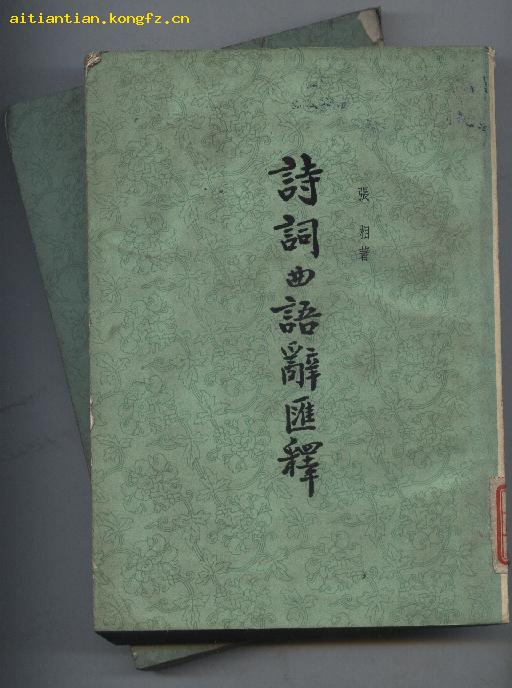 aitiantian.kongfz.cn
張相著
詩詞曲語辭匯釋